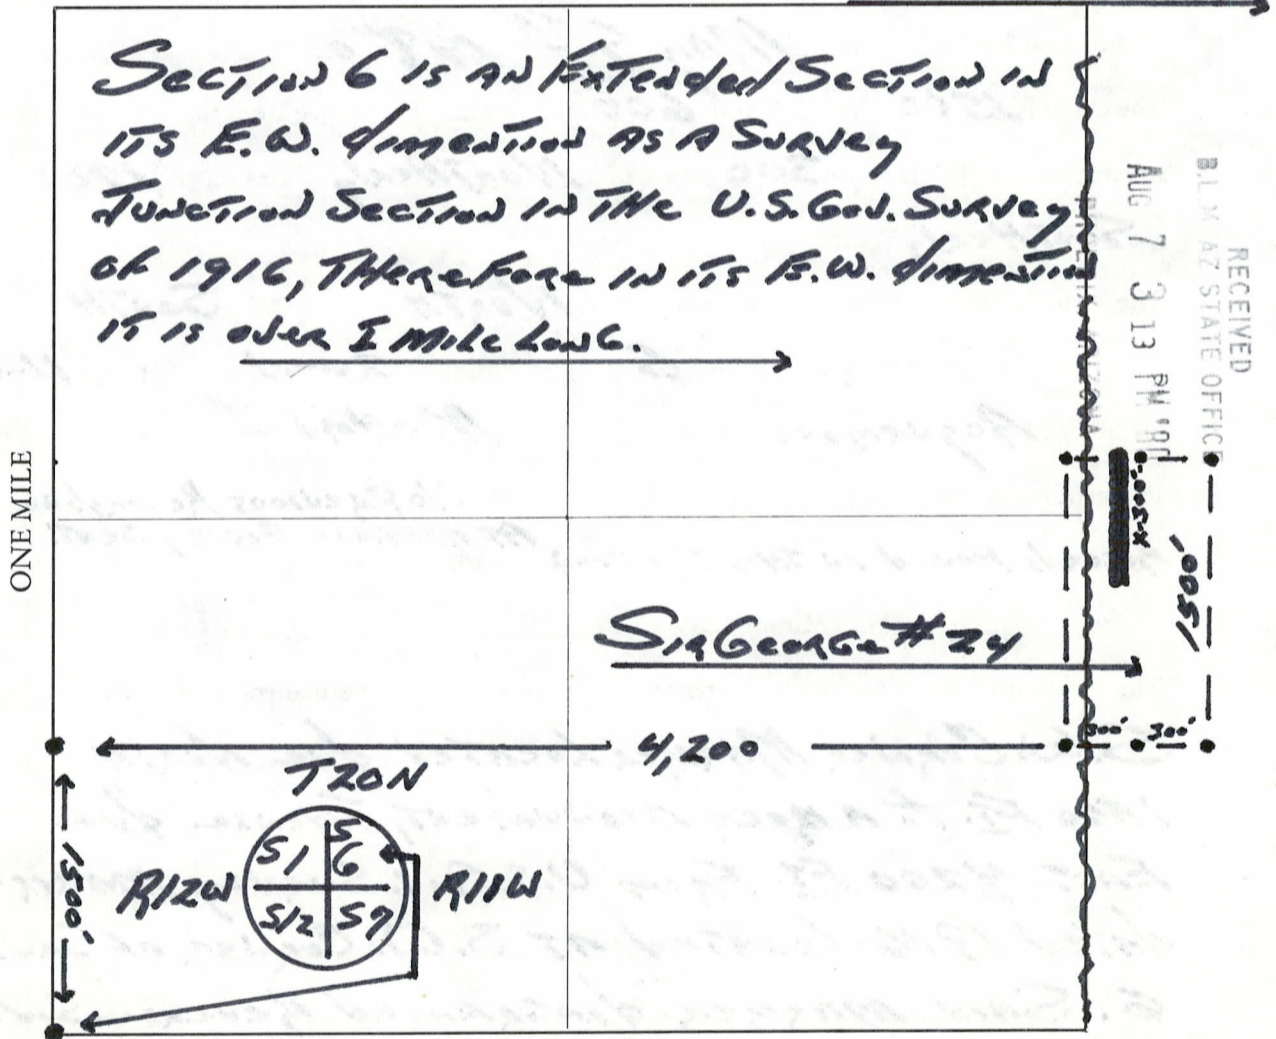 Section 6 is an Extended Section in
its E.W. dimention as a Survey
Junction Section in the U.S. Gov. Survey
of 1916, therefore in its E.W. dimention
it is over 1 mile long.
RECEIVED
B.L.M. AZ STATE OFFICE
AUG 7 3 13 PM '80
PHOENIX, ARIZONA
ONE MILE
X-300'-X
1500'
Sir George #24
300' 300'
4,200
T20N
1500'
R12W
S1
S6
R11W
S12
S7